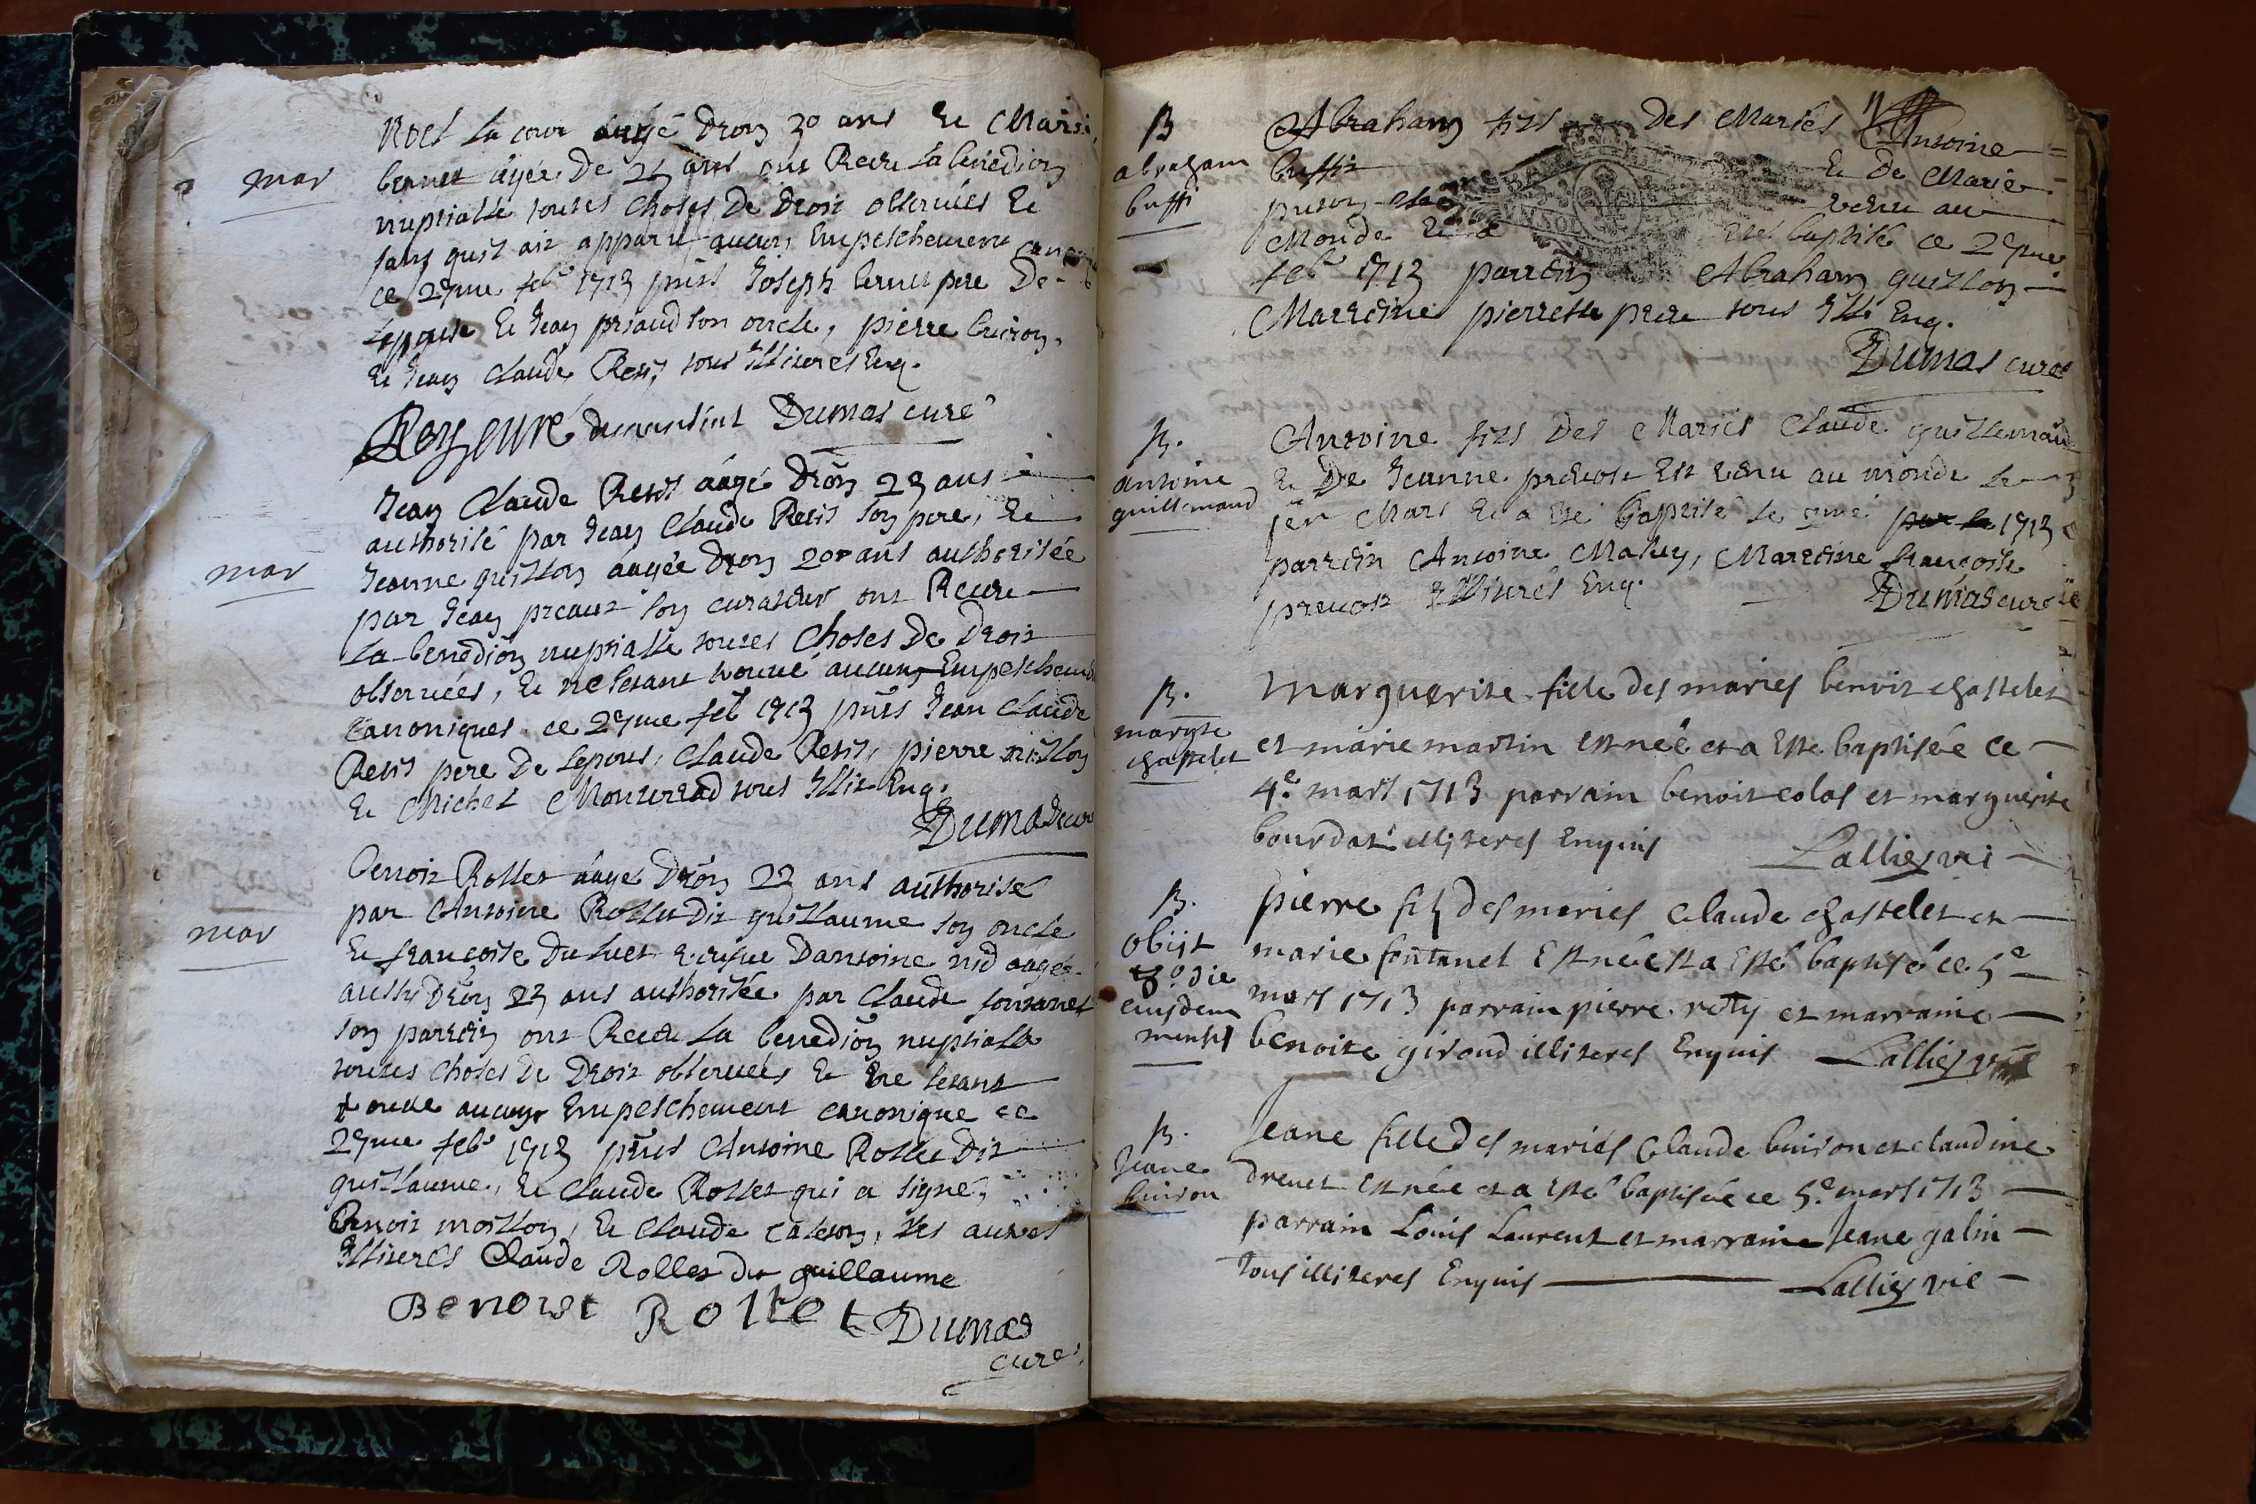 mar
Noel La cour aagé Dron 30 ans Et Marie
bernet agée De 25 ans ont Receu La benedion
nuptialle toutes Choses De Droit observées Et
sans quil ait apparu aucun Empeschement canonique
ce 27me feb 1713 pnts Joseph bernet pere De
Lepouse Et Jean priaud son oncle, pierre buiron,
Et Jean Claude Retis tous Illiteres Enq.
Rey curé Dumas curé
mar
Jean Claude Retis aagé Dron 23 ans
authorisé par Jean Claude Retis son pere, Et
Jeanne guillon aagée Dron 20 ans authorisée
par Jean preaux son curateur ont Receu
La benedion nuptialle toutes Choses De Droit
observées, Et ne sétant trouvé aucuns Empeschem
Canoniques ce 27me feb 1713 pnts Jean Claude
Retis père De Lepous, Claude Retis, pierre
Et Michel tous Illit Enq.
Dumas cur
mar
benoit Rollet aagé Dron 22 ans authorisé
par Antoine Rollet Dit guillaume son oncle
Et françoise Du vefve Dantoine nid aagée
aussy Dron 23 ans authorisée par Claude fontanet
son parrein ont Receu La benedion nuptialle
toutes choses De Droit observées Et ne sétant
trouvé aucuns Empeschement canonique ce
27me feb 1713 pnts Antoine Rollet Dit
guillaume, Et Claude Rollet qui a signé,
Benoit moillon, Et Claude Les autres
Illiteres Claude Rollet dit guillaume
Benoist Rollet Dumas
curé
B
abraham
buffi
Abraham fils Des Mariés Antoine
buffit Et De Marie
venu au
Monde Et a esté baptisé ce 27me
feb 1713 parrein Abraham guillon
Marreine pierrette tous Illi Enq.
Dumas curé
B.
antoine
guillemaud
Antoine fils Des Mariés Claude guillemaud
Et De Jeanne prevost Est venu au monde Le
1er Mars Et a Esté Baptisé Le par la 1713
parrein Antoine Marreine françoise
prevost Illiterés Enq.
Dumas curé
B.
margte
chastelet
Marguerite fille des mariés benoit chastelet
et marie martin est née et a Esté baptisée ce
4e mars 1713 parrain benoit colas et marguerite
bourdat illiteres Enquis
Lallier vi
B.
obiit
8o die
eiusdem
mensis
pierre fils des mariés Claude chastelet et
marie fontanel Est né Et a Esté baptisé ce 5e
mars 1713 parrain pierre rety et marraine
benoite giroud illiteres Enquis Lallier vic
B.
Jeane
buiron
Jeane fille des mariés Claude buiron et claudine
drevet est née et a Esté baptisée ce 5e mars 1713
parrain Louis Laurent et marraine Jeane galin
Tous illiteres Enquis
Lallier vic